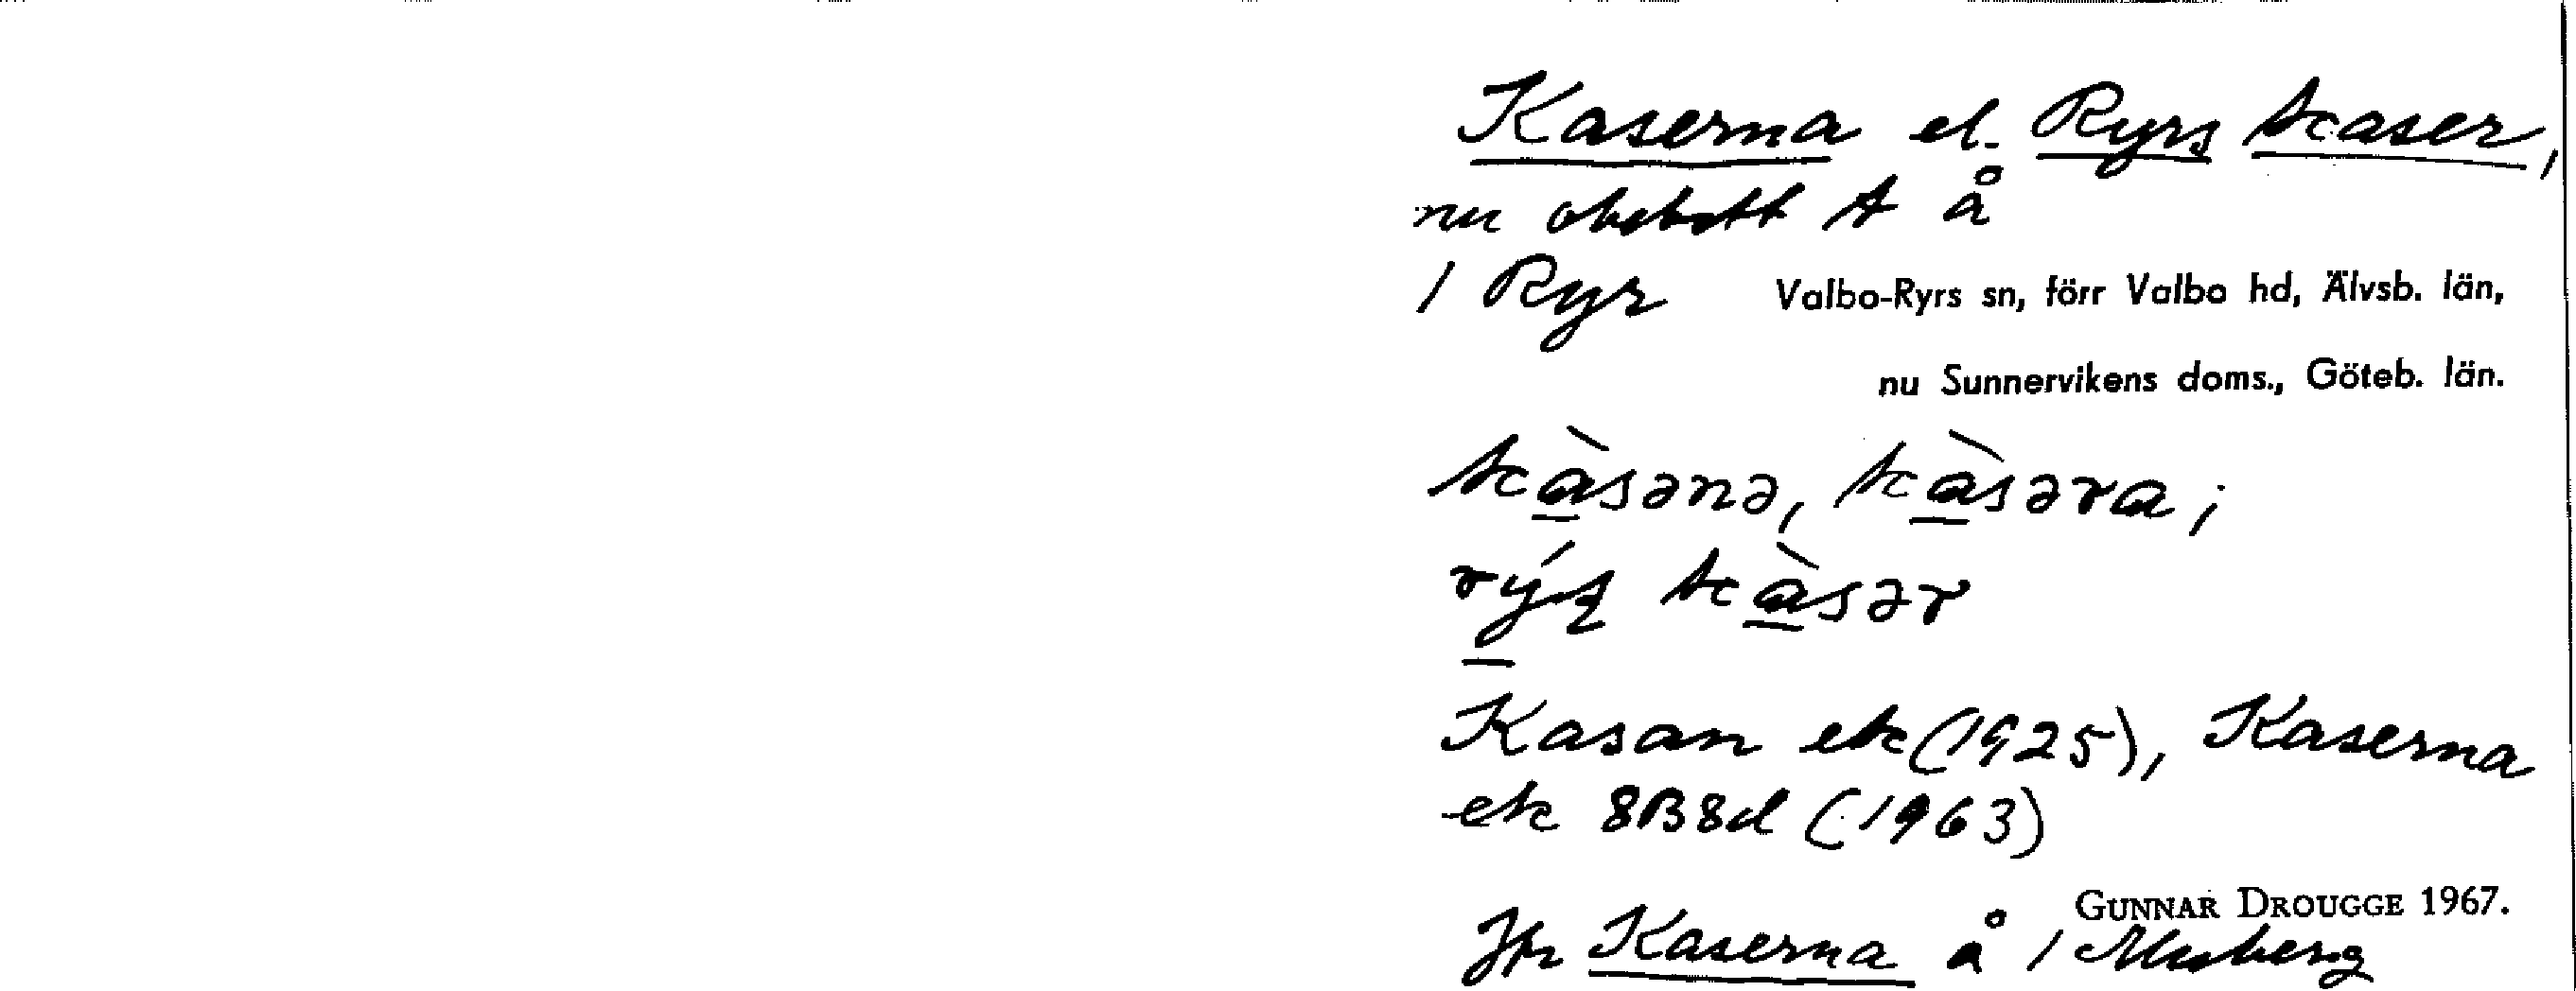 Kaserna el. Ryrs kaser,
nu obebott t å
1 Ryr Valbo-Ryrs sn, förr Valbo hd, Älvsb. län,
nu Sunnervikens doms., Göteb. län.
kàsənə, kàsəra;
rýʂ kàsər
Kasan ek (1925), Kaserna
ek 8B8d (1963)
GUNNAR DROUGGE 1967.
Jfr Kaserna å 1